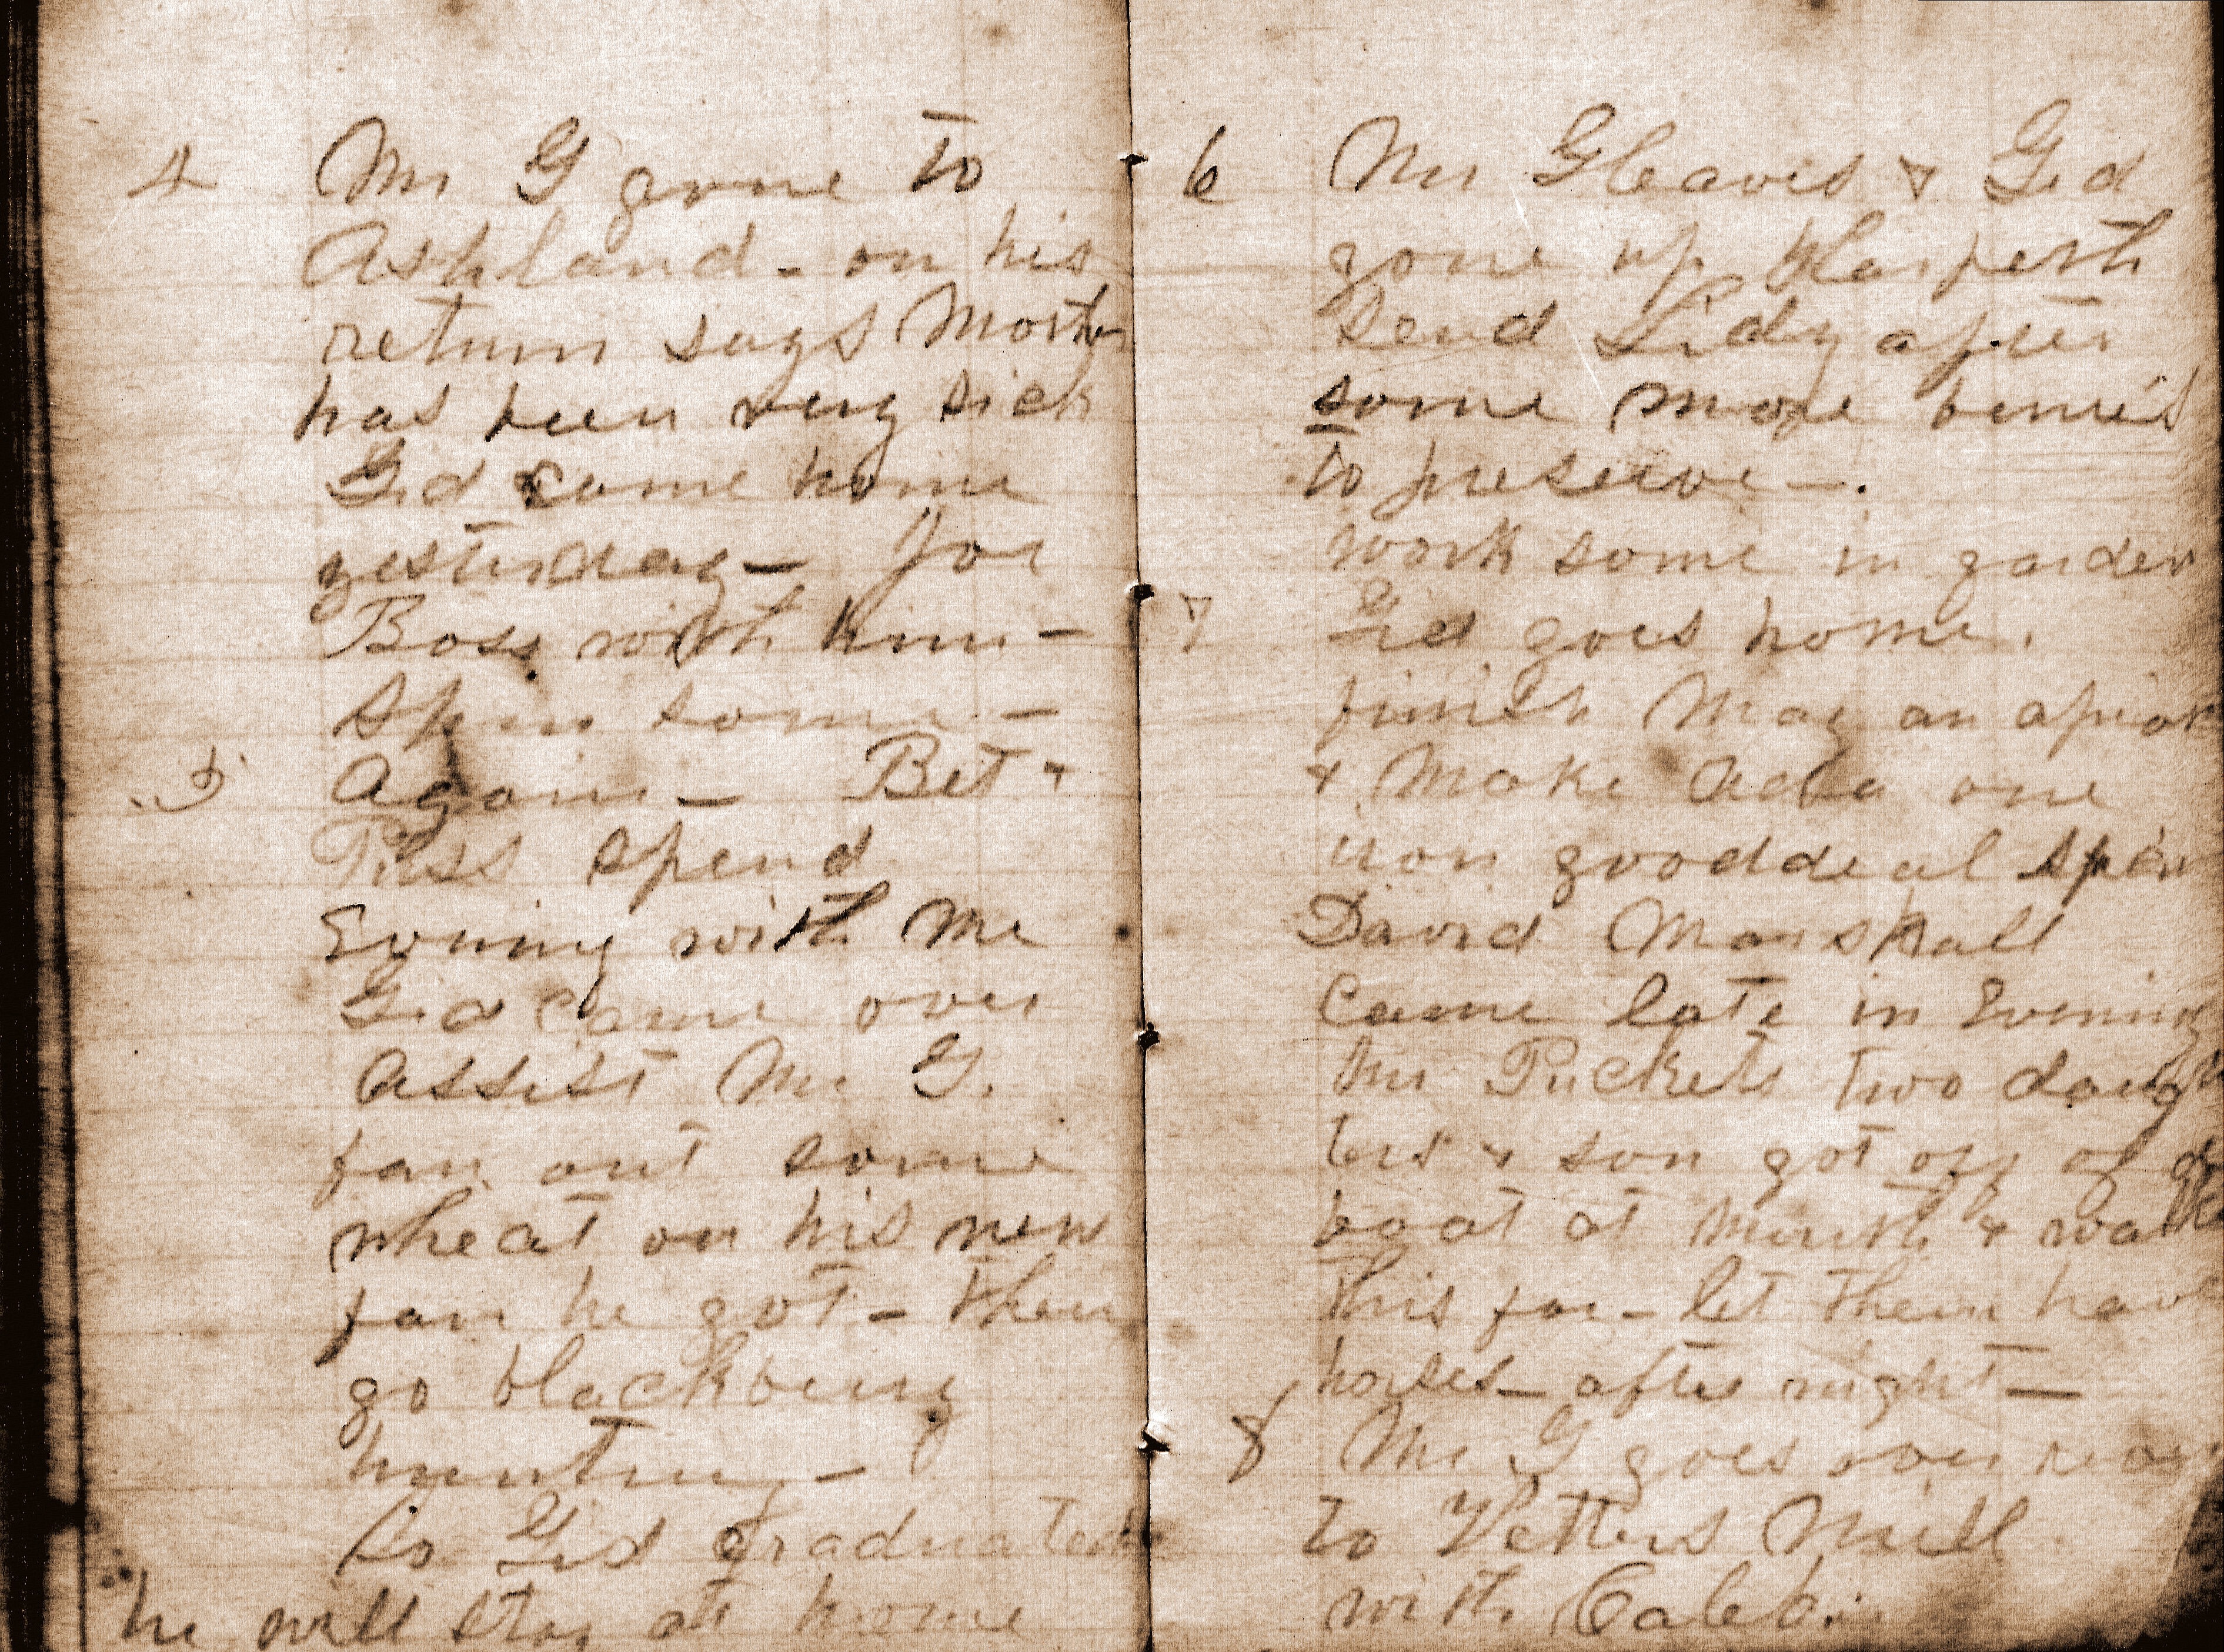 4 Mr G gone to
Ashland - on his
return says Mother
has been very sick
Gid came home
yesterday - Joe
Boss with him -
Spin some -
5 Again - Bet &
Puss spend
Evning with Me
Gid came over
assist Mr G.
fan out some
wheat on his new
fan he got - then
go blackberry
huntin -
As Gid graduated
he will stay at home
6 Mr Gleaves & Gid
gone up Harpeth
Send Lidy after
some more berries
to preserve -.
work some in garden
7 Gid goes home.
finish May an apron
& Make Ada one
iron gooddeal Spin
David Marshall
Came late in Evening
Mr Puckets two daugh
ters & son got off of
boat at Mouth &
this far - let them have
horses - after night -
8 Mr G goes over
to Vetters Mill
with Caleb.